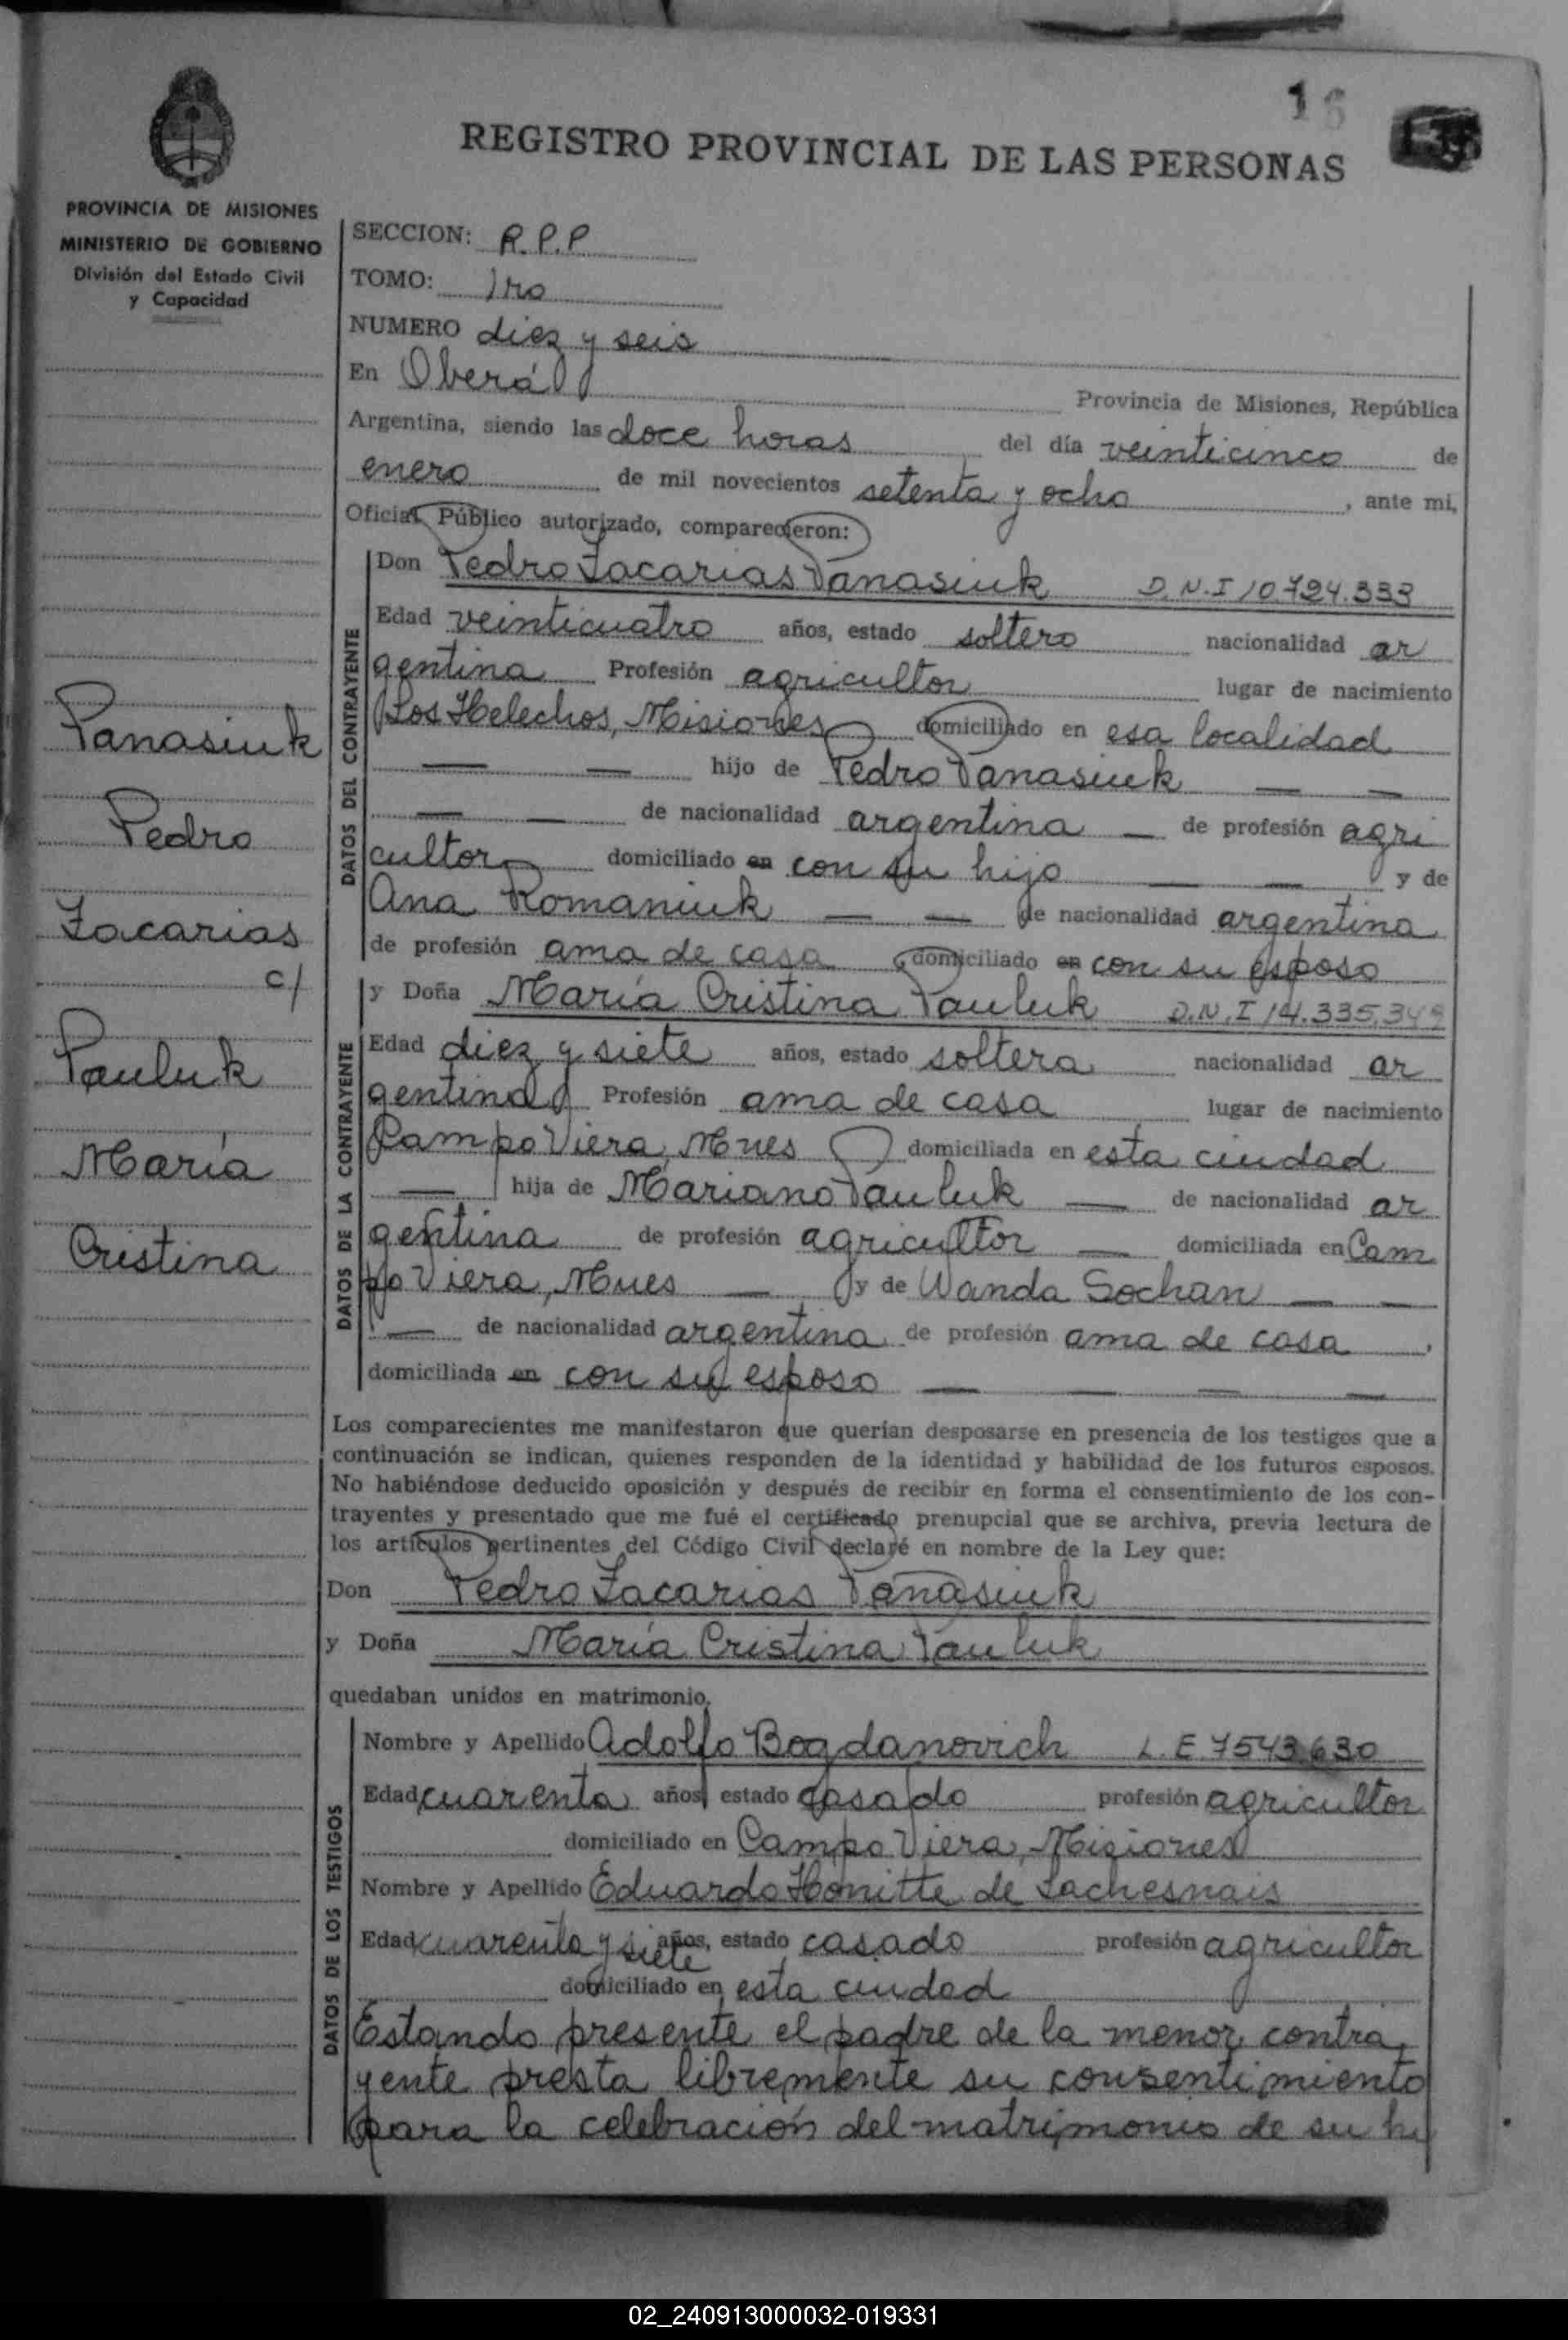 16
REGISTRO PROVINCIAL DE LAS PERSONAS
PROVINCIA DE MISIONES
MINISTERIO DE GOBIERNO
División del Estado Civil
y Capacidad
Panasiuk
Pedro
Zacarias
c/
Pauluk
María
Cristina
SECCION: R.P.P
TOMO: 1ro
NUMERO diez y seis
En Oberá Provincia de Misiones, República
Argentina, siendo las doce horas del día veinticinco de
enero de mil novecientos setenta y ocho, ante mi,
Oficial Público autorizado, comparecieron:
DATOS DEL CONTRAYENTE
Don Pedro Zacarias Panasiuk D.N.I 10.724.333
Edad veinticuatro años, estado soltero nacionalidad ar
gentina Profesión agricultor lugar de nacimiento
Los Helechos, Misiones domiciliado en esa localidad
— — hijo de Pedro Panasiuk — —
— — de nacionalidad argentina — de profesión agri
cultor domiciliado en con su hijo — — y de
Ana Romaniuk — — de nacionalidad argentina
de profesión ama de casa domiciliado en con su esposo
DATOS DE LA CONTRAYENTE
y Doña María Cristina Pauluk D.N.I 14.335.349
Edad diez y siete años, estado soltera nacionalidad ar
gentina Profesión ama de casa lugar de nacimiento
Campo Viera, Mnes domiciliada en esta ciudad
— hija de Mariano Pauluk — de nacionalidad ar
gentina de profesión agricultor — domiciliada en Cam
po Viera, Mnes — y de Wanda Sochan — —
— de nacionalidad argentina de profesión ama de casa,
domiciliada en con su esposo — — — —
Los comparecientes me manifestaron que querían desposarse en presencia de los testigos que a
continuación se indican, quienes responden de la identidad y habilidad de los futuros esposos.
No habiéndose deducido oposición y después de recibir en forma el consentimiento de los con-
trayentes y presentado que me fué el certificado prenupcial que se archiva, previa lectura de
los artículos pertinentes del Código Civil declaré en nombre de la Ley que:
Don Pedro Zacarias Panasiuk
y Doña María Cristina Pauluk
quedaban unidos en matrimonio.
DATOS DE LOS TESTIGOS
Nombre y Apellido Adolfo Bogdanovich L.E 7543630
Edad cuarenta años, estado casado profesión agricultor
domiciliado en Campo Viera, Misiones
Nombre y Apellido Eduardo Honitte de Lachesnais
Edad cuarenta y siete años, estado casado profesión agricultor
domiciliado en esta ciudad
Estando presente el padre de la menor contra
yente presta libremente su consentimiento
para la celebración del matrimonio de su hi
02_240913000032-019331